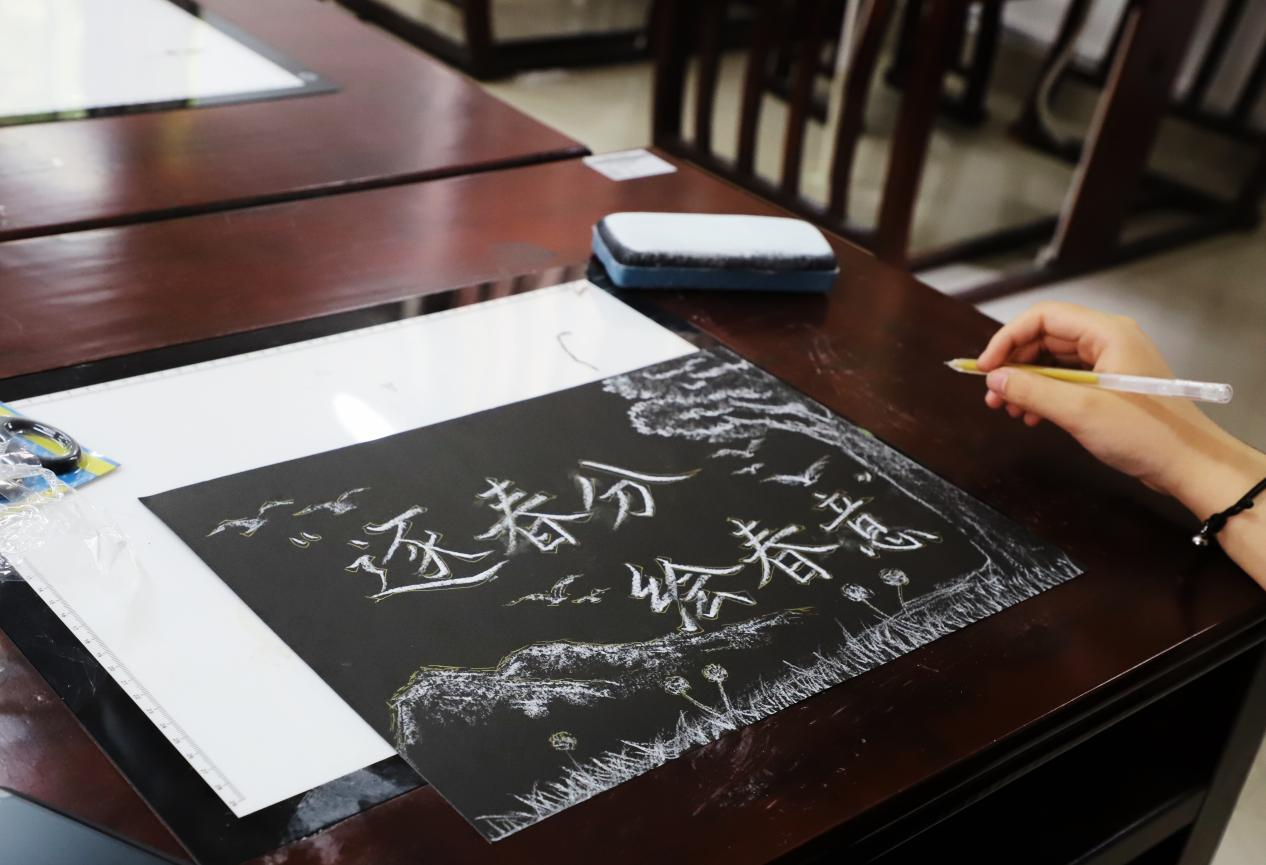 逐春分
绘春意